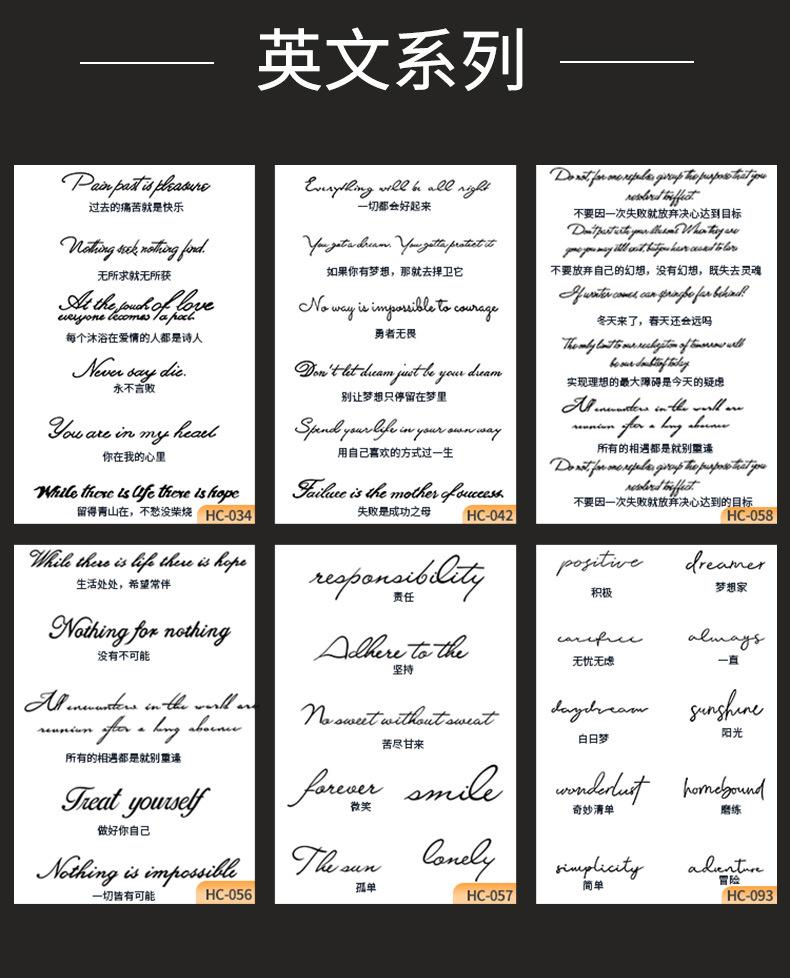 英文系列
Pain past is pleasure
过去的痛苦就是快乐
Nothing seek, nothing find.
无所求就无所获
At the touch of love
everyone becomes a poet.
每个沐浴在爱情的人都是诗人
Never say die.
永不言败
You are in my heart
你在我的心里
While there is life there is hope
留得青山在，不愁没柴烧
HC-034
Everything will be all right
一切都会好起来
You gota dream. You gotta protect it
如果你有梦想，那就去捍卫它
No way is impossible to courage
勇者无畏
Don't let dream just be your dream
别让梦想只停留在梦里
Spend your life in your own way
用自己喜欢的方式过一生
Failure is the mother of success
失败是成功之母
HC-042
Do not, for one repulse, giveup the purpose that you
resolved to effect.
不要因一次失败就放弃决心达到目标
Don't part with your illusions When they are
gone you may still exist, but you have ceased to live
不要放弃自己的幻想，没有幻想，既失去灵魂
If winter comes, can spring be far behind?
冬天来了，春天还会远吗
The only limit to our realization of tomorrow will
be our doubts of today
实现理想的最大障碍是今天的疑虑
All encounters in the world are
reunion after a long absence
所有的相遇都是就别重逢
Do not, for one repulse, giveup the purpose that you
resolved to effect.
不要因一次失败就放弃决心达到的目标
HC-058
While there is life there is hope
生活处处，希望常伴
Nothing for nothing
没有不可能
All encounters in the world are
reunion after a long absence
所有的相遇都是就别重逢
Treat yourself
做好你自己
Nothing is impossible
一切皆有可能
HC-056
responsibility
责任
Adhere to the
坚持
No sweet without sweat
苦尽甘来
forever smile
微笑
The sun lonely
孤单
HC-057
positive dreamer
积极 梦想家
carefree always
无忧无虑 一直
daydream sunshine
白日梦 阳光
wonderlust homebound
奇妙清单 磨练
simplicity adventure
简单 冒险
HC-093